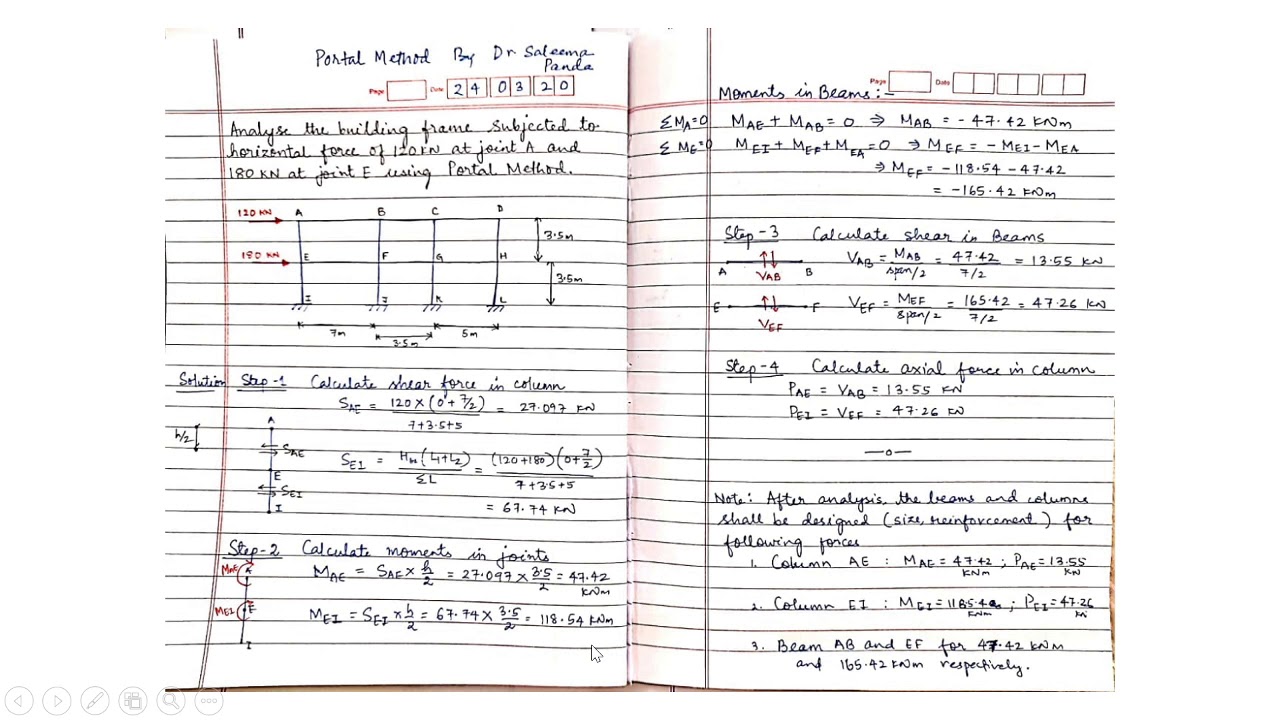 Portal Method By Dr Saleema
Panda
Page Date 24 03 20
Analyse the building frame subjected to
horizontal force of 120KN at joint A and
180 KN at joint E using Portal Method.
120 KN A B C D
3.5m
180 KN E F G H
3.5m
I J K L
7m 3.5m 5m
Solution Step-1 Calculate shear force in column
S_AE = 120 × (0 + 7/2) / 7+3.5+5 = 27.097 KN
A
h/2
S_AE
S_EI = H_n (L1+L2) / ΣL = (120+180)(0+7/2) / 7+3.5+5
E
S_EI
= 67.74 KN
I
Step-2 Calculate moments in joints
M_AE = S_AE × h/2 = 27.097 × 3.5/2 = 47.42 KNm
M_AE A
M_EI = S_EI × h/2 = 67.74 × 3.5/2 = 118.54 KNm
M_EI E
I
Page Date
Moments in Beams :-
ΣM_A=0 M_AE + M_AB = 0 ⇒ M_AB = - 47.42 KNm
ΣM_E=0 M_EI + M_EF + M_EA = 0 ⇒ M_EF = - M_EI - M_EA
⇒ M_EF = -118.54 - 47.42
= -165.42 KNm
Step-3 Calculate shear in Beams
A V_AB B V_AB = M_AB / span/2 = 47.42 / 7/2 = 13.55 KN
E V_EF F V_EF = M_EF / span/2 = 165.42 / 7/2 = 47.26 KN
Step-4 Calculate axial force in column
P_AE = V_AB = 13.55 KN
P_EI = V_EF = 47.26 KN
—o—
Note: After analysis, the beams and columns
shall be designed (size, reinforcement) for
following forces
1. Column AE : M_AE = 47.42 KNm ; P_AE = 13.55 KN
2. Column EI : M_EI = KNm ; P_EI = 47.26 KN
3. Beam AB and EF for 47.42 KNM
and 165.42 KNm respectively.